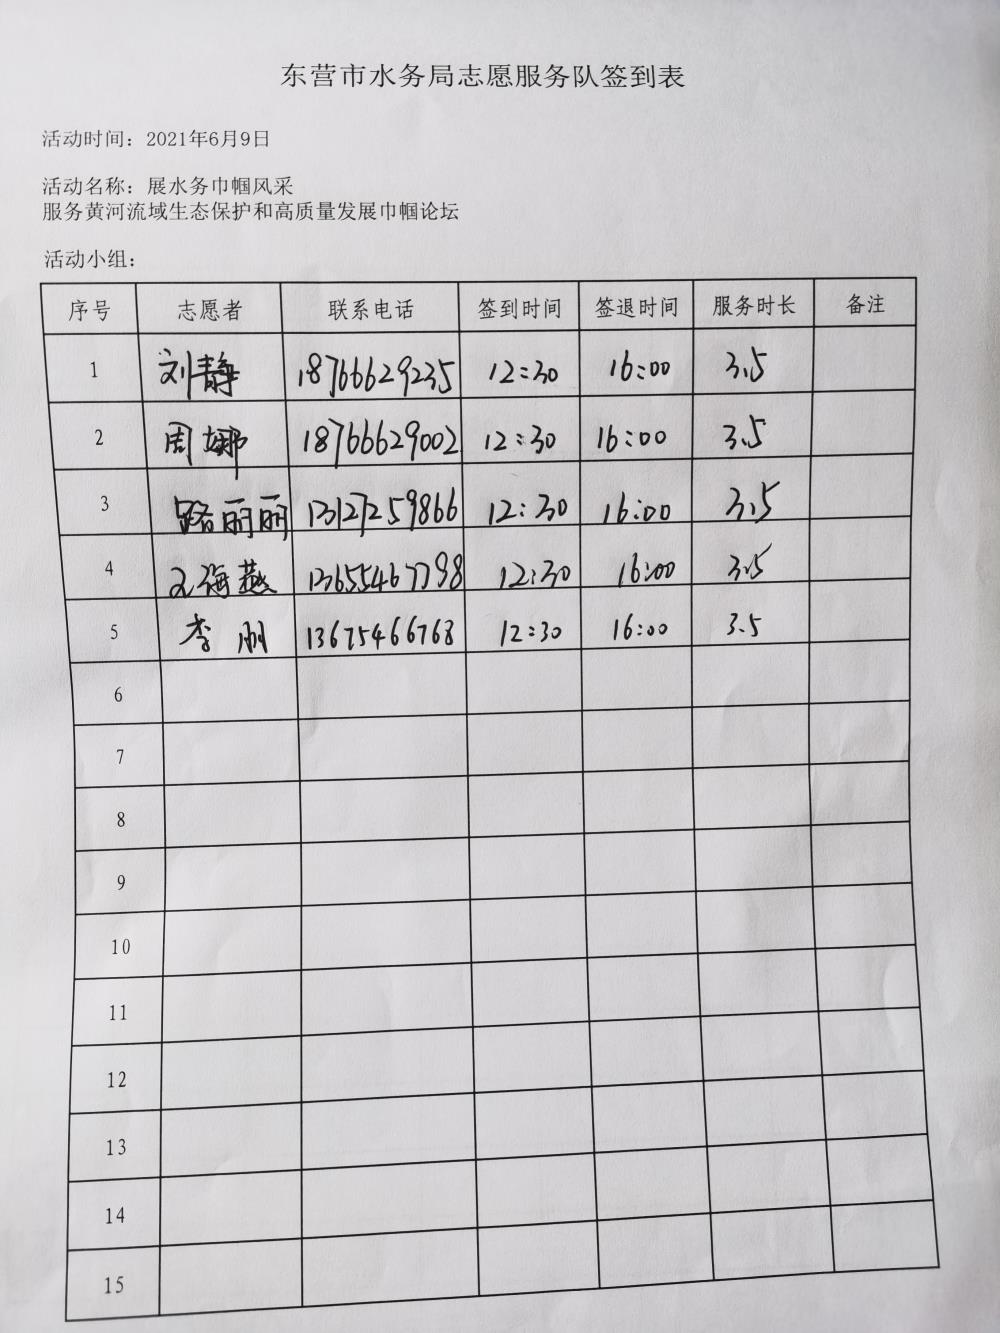 东营市水务局志愿服务队签到表
活动时间：2021年6月9日
活动名称：展水务巾帼风采
服务黄河流域生态保护和高质量发展巾帼论坛
活动小组：
序号 志愿者 联系电话 签到时间 签退时间 服务时长 备注
1 刘静 18766629235 12:30 16:00 3.5
2 周娜 18766629002 12:30 16:00 3.5
3 路丽丽 13127259866 12:30 16:00 3.5
4 海燕 13655467798 12:30 16:00 3.5
5 李 13675466768 12:30 16:00 3.5
6
7
8
9
10
11
12
13
14
15